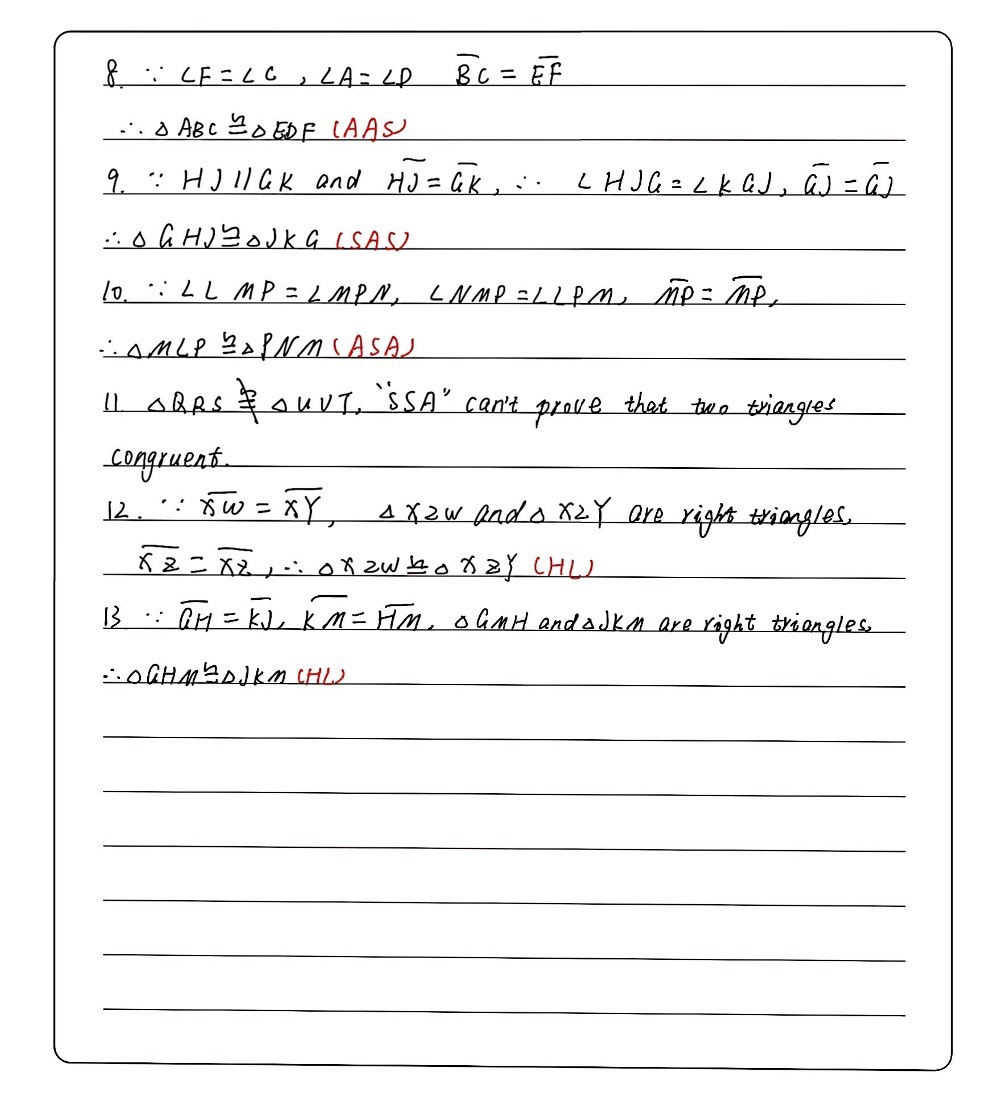 8. ∵ ∠F = ∠C , ∠A = ∠D B̅C̅ = E̅F̅
∴ △ ABC ≌ △ EDF (AAS)
9. ∵ HJ // GK and H̅J̅ = G̅K̅ , ∴ ∠HJG = ∠KGJ, G̅J̅ = G̅J̅
∴ △ GHJ ≌ △JKG (SAS)
10. ∵ ∠LMP = ∠MPN, ∠NMP = ∠LPM, M̅P̅ = M̅P̅,
∴ △MLP ≌ △PNM (ASA)
11. △QRS ≌̸ △UVT, "SSA" can't prove that two triangles
congruent.
12. ∵ X̅W̅ = X̅Y̅, △XZW and △XZY are right triangles,
X̅Z̅ = X̅Z̅, ∴ △XZW ≌ △XZY (HL)
13 ∵ G̅H̅ = K̅J̅, K̅M̅ = H̅M̅, △GMH and △JKM are right triangles,
∴ △GHM ≌ △JKM (HL)